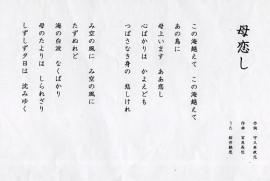 母恋し
この海越えて この海越えて
あの島に
母上います ああ恋し
心ばかりは かよえども
つばさなき身の 悲しけれ
み空の風に み空の風に
たずぬれど
海の白波 なくばかり
母のたよりは しられざり
しずしず夕日は 沈みゆく